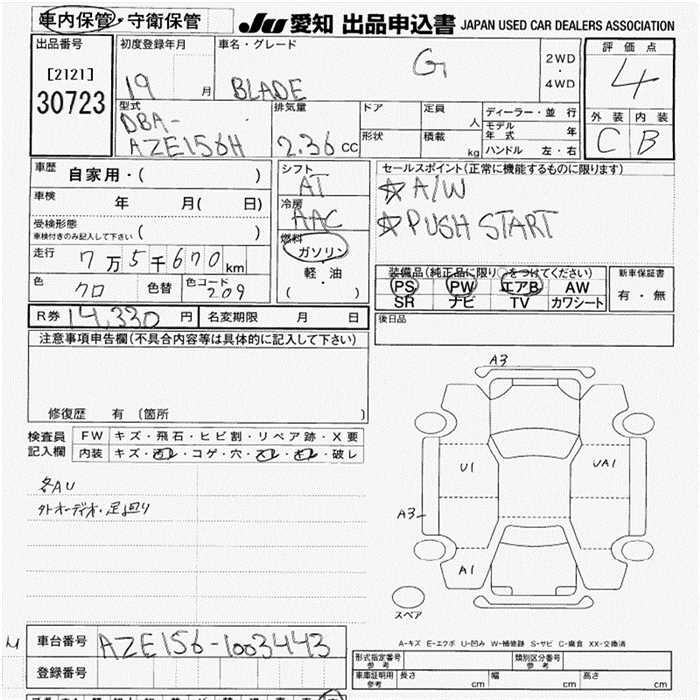 車内保管・守衛保管 JU 愛知 出品申込書 JAPAN USED CAR DEALERS ASSOCIATION
出品番号 初度登録年月 車名・グレード 評価点
[2121] G 2WD・4WD 4
30723 19 月 BLADE 外装 内装
型式 排気量 ドア 定員 人 ディーラー・並行 C B
DBA- モデル年式 年
AZE156H 2.36 cc 形状 積載 kg ハンドル 左・右
車歴 自家用・( ) シフト AT セールスポイント(正常に機能するものに限ります)
車検 年 月( 日) 冷房 AAC ☆A/W
受検形態 ☆PUSH START
車検付きのみ記入して下さい ( ) 燃料 ガソリン
走行 7万5千670km 軽・油 装備品(純正品に限り○をつけてください) 新車保証書
色 クロ 色替 色コード 209 ( ) PS PW エアB AW 有・無
SR ナビ TV カワシート
R券 14,330 円 名変期限 月 日 後日品
注意事項申告欄(不具合内容等は具体的に記入して下さい)
修復歴 有 (箇所 )
検査員 FW キズ・飛石・ヒビ割・リペア跡・X要
記入欄 内装 キズ・コゲ・穴・破レ
A3
U1 UA1
各AU
外オーディオ・足廻り
A3
A1
スペア
M 車台番号 AZE156-1003443
A-キズ E-エクボ U-凹み W-補修跡 S-サビ C-腐食 XX-交換済
登録番号 形式指定番号 参考 類別区分番号 参考
車庫証明用 参考 長さ cm 幅 cm 高さ cm